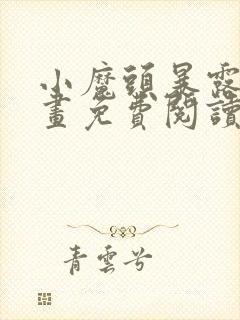 小魔頭暴露
畫免費閱讀
青雲兮